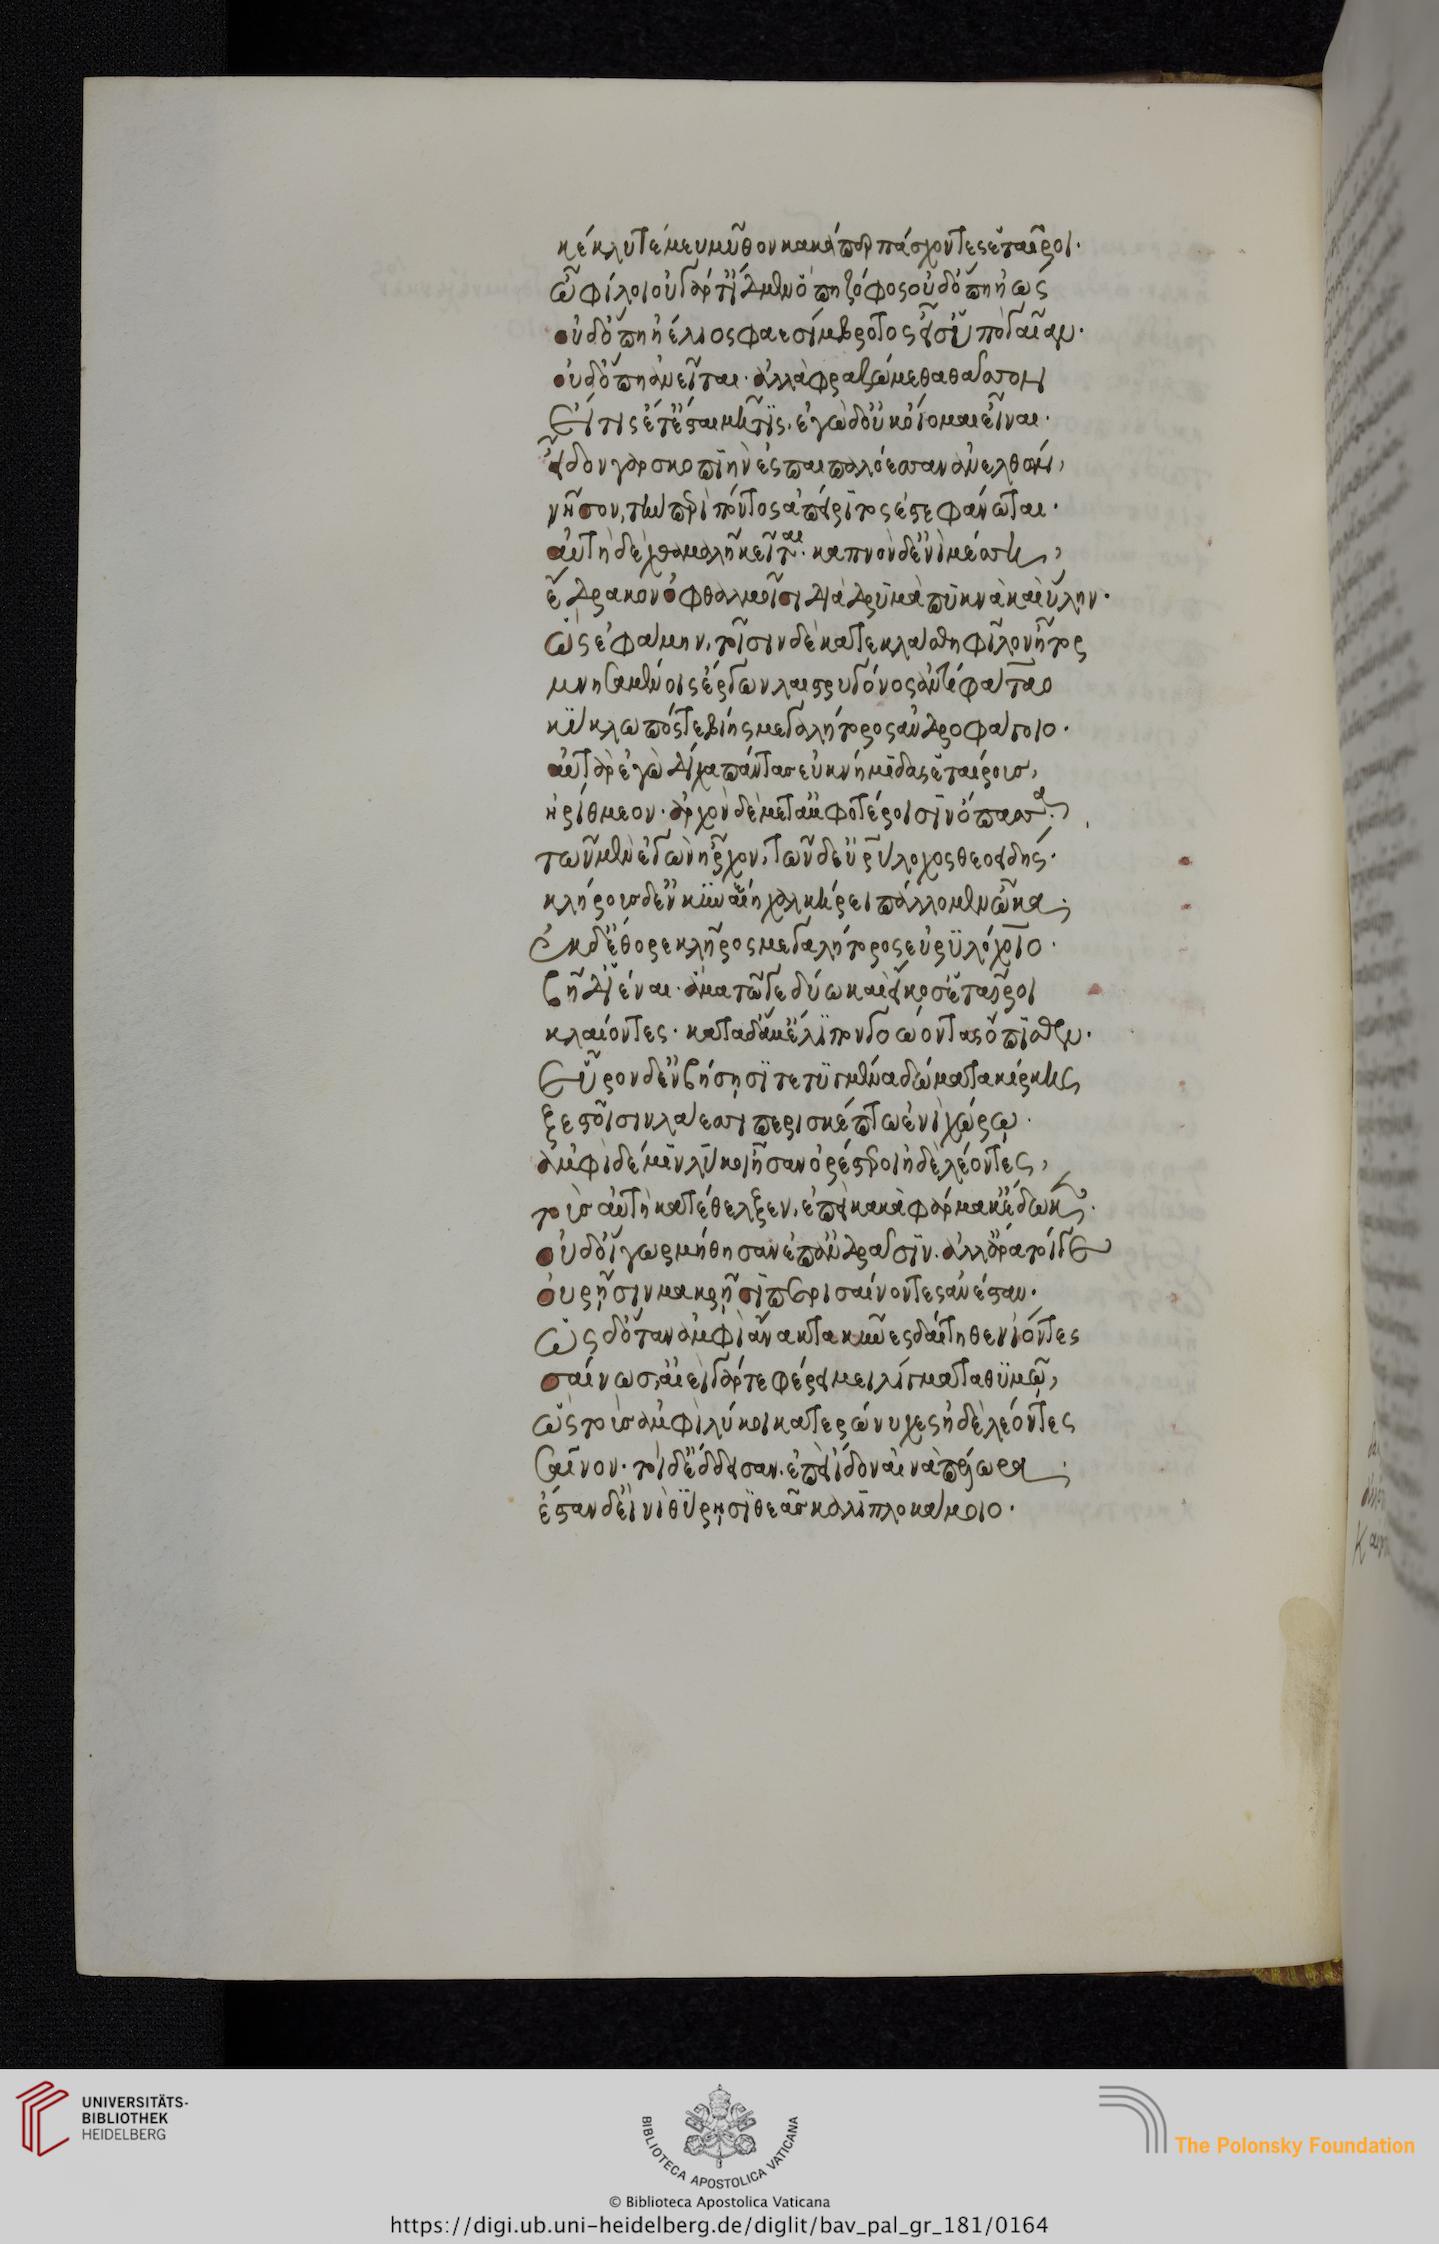 κέκλυτέ μευ μῦθον κακά περ πάσχοντες ἑταῖροι·
ὦ φίλοι οὐ γάρ τ' ἴδμεν ὅπη ζόφος οὐδ' ὅπη ἠώς
οὐδ' ὅπη ἠέλιος φαεσίμβροτος εἶσ' ὑπὸ γαῖαν·
οὐδ' ὅπη ἀνεῖται· ἀλλὰ φραζώμεθα θᾶσσον
εἴ τις ἔτ' ἔσται μῆτις· ἐγὼ δ' οὐκ ὀΐομαι εἶναι·
εἶδον γὰρ σκοπιὴν ἐς παιπαλόεσσαν ἀνελθών,
νῆσον, τὴν πέρι πόντος ἀπείριτος ἐστεφάνωται·
αὐτὴ δὲ χθαμαλὴ κεῖται· καπνὸν δ' ἐνὶ μέσση,
ἔδρακον ὀφθαλμοῖσι διὰ δρυμὰ πυκνὰ καὶ ὕλην·
ὣς ἐφάμην, τοῖσιν δὲ κατεκλάσθη φίλον ἦτορ
μνησαμένοις ἔργων λαιστρυγόνος ἀντιφάταο
κύκλωπός τε βίης μεγαλήτορος ἀνδροφάγοιο·
αὐτὰρ ἐγὼ δίχα πάντας ἐυκνήμιδας ἑταίρους,
ἠρίθμεον· ἀρχὸν δὲ μετ' ἀμφοτέροισιν ὄπασσα·
τῶν μὲν ἐγὼν ἦρχον, τῶν δ' εὐρύλοχος θεοειδής·
κλήρους δ' ἐν κυνέη χαλκήρει πάλλομεν ὦκα·
ἐκ δ' ἔθορε κλῆρος μεγαλήτορος εὐρυλόχοιο·
βῆ δ' ἰέναι· ἅμα τῶγε δύω καὶ εἴκοσ' ἑταῖροι
κλαίοντες· κατὰ δ' ἄμμε λίπον γοόωντας ὄπισθεν·
εὗρον δ' ἐν βήσσησι τετυγμένα δώματα κίρκης
ξεστοῖσιν λάεσσι περισκέπτω ἐνὶ χώρω·
ἀμφὶ δέ μιν λύκοι ἦσαν ὀρέστεροι ἠδὲ λέοντες,
τοὺς αὐτὴ κατέθελξεν, ἐπεὶ κακὰ φάρμακ' ἔδωκεν·
οὐδ' οἵγ' ὡρμήθησαν ἐπ' ἀνδράσιν· ἀλλ' ἄρα τοίγε
οὐρῆσιν μακρῆσι περισαίνοντες ἀνέσταν·
ὡς δ' ὅταν ἀμφὶ ἄνακτα κύνες δαίτηθεν ἰόντες
σαίνωσ', αἰεὶ γάρ τε φέρει μειλίγματα θυμῶ,
ὣς τοὺς ἀμφὶ λύκοι κατερώνυχες ἠδὲ λέοντες
σαῖνον· τοὶ δ' ἔδδεισαν, ἐπεὶ ἴδον αἰνὰ πέλωρα·
ἔσταν δ' εἰνὶ θύρησι θεᾶς καλλιπλοκάμοιο·
UNIVERSITÄTS-
BIBLIOTHEK
HEIDELBERG
BIBLIOTECA APOSTOLICA VATICANA
The Polonsky Foundation
© Biblioteca Apostolica Vaticana
https://digi.ub.uni-heidelberg.de/diglit/bav_pal_gr_181/0164